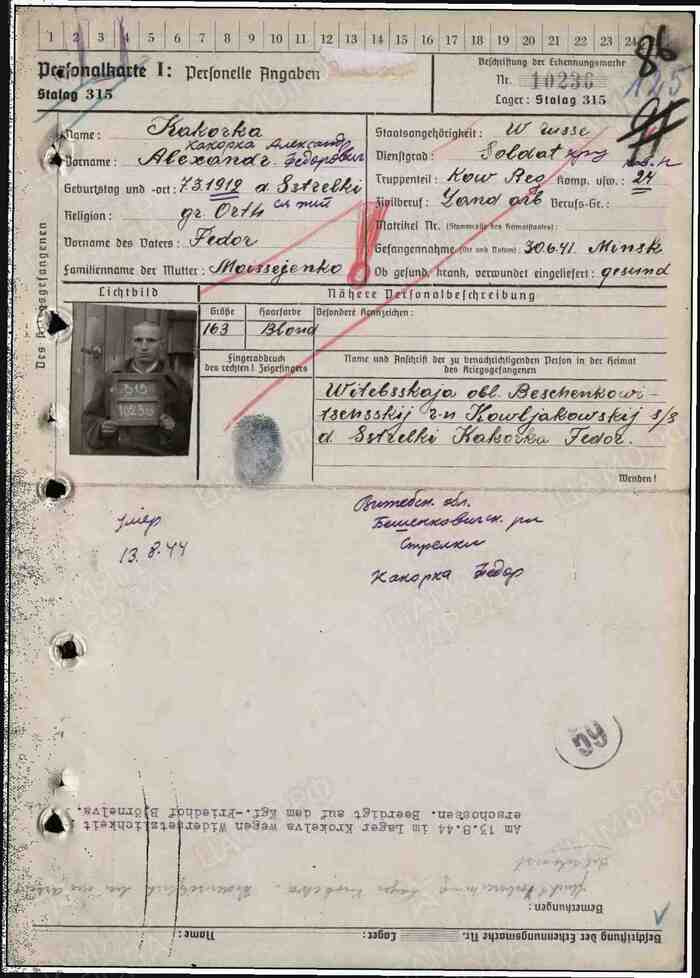 1 2 3 4 5 6 7 8 9 10 11 12 13 14 15 16 17 18 19 20 21 22 23 24
86
Personalkarte I: Personelle Angaben
Beschriftung der Erkennungsmarke
Stalag 315
Nr. 10236
125
Lager: Stalag 315
Des Kriegsgefangenen
Name: Kakorka
Какорка Александр
Vorname: Alexandr Федорович
Geburtstag und -ort: 7.3.1912 d Sstrelki
Religion: gr. Orth
Vorname des Vaters: Fedor
Familienname der Mutter: Moissejenko
Staatsangehörigkeit: W russe
Dienstgrad: Soldat
Truppenteil: Kow Reg Komp. usw.: 24
Zivilberuf: Land arb Berufs-Gr.:
Matrikel Nr. (Stammrolle des Heimatstaates):
Gefangennahme (Ort und Datum): 30.6.41. Minsk
Ob gesund, krank, verwundet eingeliefert: gesund
Lichtbild
Nähere Personalbeschreibung
Größe Haarfarbe Besondere Kennzeichen:
163 Blond
315
10236
Fingerabdruck
des rechten! Zeigefingers
Name und Anschrift der zu benachrichtigenden Person in der Heimat
des Kriegsgefangenen
Witebsskaja obl. Beschenkowi-
tsensskij r-n Kowljakowskij s/s
d Sstrelki Kakorka Fedor.
Wenden!
умер
13.8.44
Витебск. обл.
Бешенковичск. рн
Стрелки
Какорка Федор
59
Am 13.8.44 im Lager Krokelva wegen Widersetzlichkeit
erschossen. Beerdigt auf dem Kgf.-Friedhof Björnelva.
Bemerkungen:
Beschriftung der Erkennungsmarke Nr. Lager: Name: